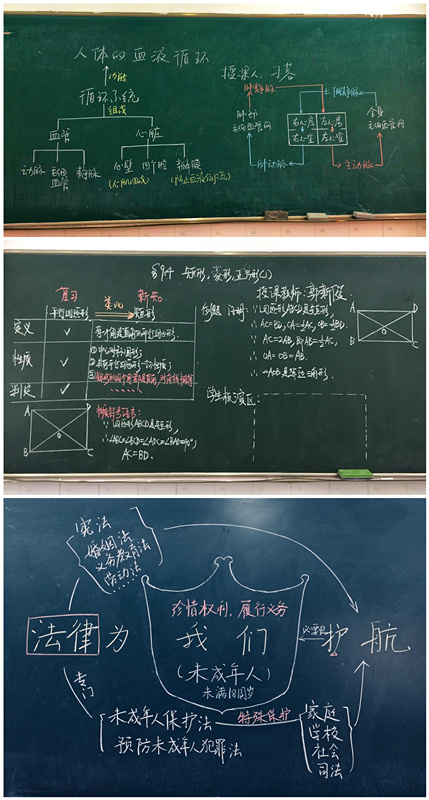 人体的血液循环
功能
循环系统
组成
血管
心脏
动脉 毛细血管 静脉
心壁 四个腔
授课人:刁蓉
肺静脉
上下腔静脉
肺部毛细血管网
右心房 左心房
右心室 左心室
全身毛细血管网
肺动脉
主动脉
§9.4 矩形,菱形,正方形(1)
复习 类比 新知
平行四边形 矩形
定义 ✓
性质 ✓
判定 ✓
有一个角是直角的平行四边形.
A D
O
B C
∵四边形ABCD是矩形,
∴∠ABC=∠BCD=∠ADC=∠BAD=90°,
AC=BD.
例题 证明:∵四边形ABCD是矩形
∴AC=BD, OA=½AC, OB=½BD.
∵AC=2AB, 即AB=½AC,
∴OA=OB=AB.
∴△AOB是等边三角形.
授课教师:郭新霞
A D
O
B C
学生板演区:
宪法
婚姻法
义务教育法
劳动法
……
珍惜权利,履行义务
法律为 我们 必要性 护航
(未成年人)
未满18周岁
专门
未成年人保护法
预防未成年人犯罪法
特殊保护
家庭
学校
社会
司法